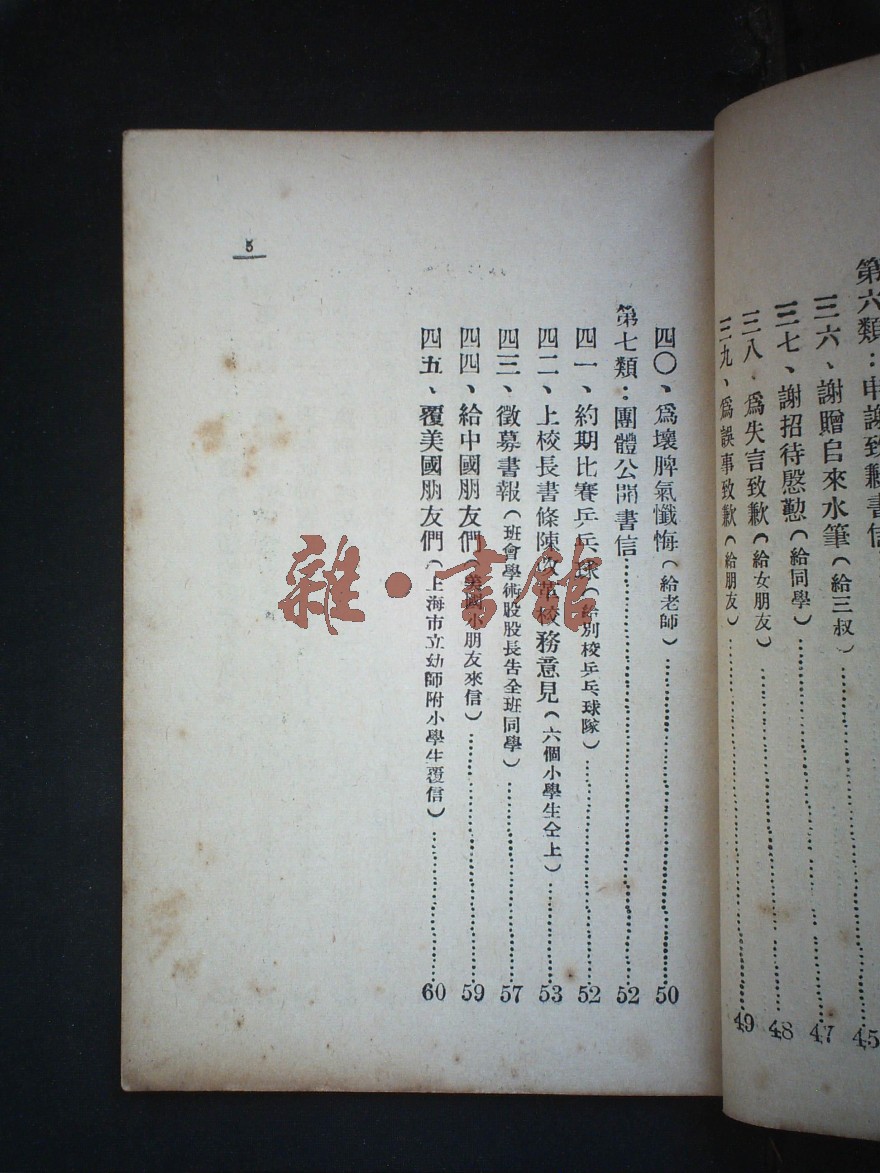 第六類：申謝致歉書信 45
三六、謝贈自來水筆（給三叔） 47
三七、謝招待慇懃（給同學） 48
三八、爲失言致歉（給女朋友） 49
三九、爲誤事致歉（給朋友）
四〇、爲壞脾氣懺悔（給老師） 50
第七類：團體公開書信 52
四一、約期比賽乒乓球（給別校乒乓球隊） 52
四二、上校長書條陳改革校務意見（六個小學生仝上） 53
四三、徵募書報（班會學術股股長告全班同學） 57
四四、給中國朋友們（美國小朋友來信） 59
四五、覆美國朋友們（上海市立幼師附小學生覆信） 60
5
雜·書館